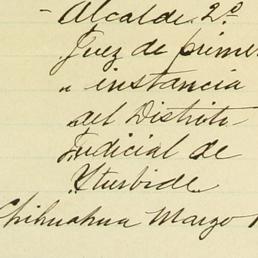 - Alcalde 2.º
Juez de prime
" instancia
del Distrito
Judicial de
Yturbide.
Chihuahua Marzo